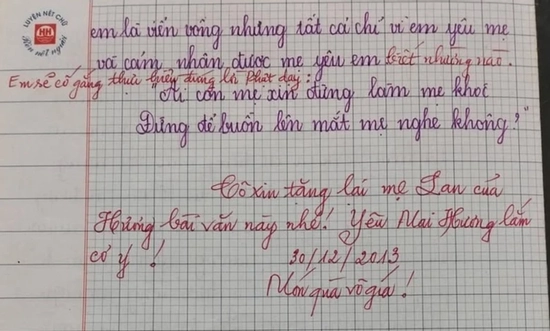 LUYỆN NÉT CHỮ
HN
RÈN NẾT NGƯỜI
em là viển vông nhưng tất cả chỉ vì em yêu mẹ
và cảm nhận được mẹ yêu em biết nhường nào.
Em sẽ cố gắng thực hiện đúng lời Phật dạy:
"Ai còn mẹ xin đừng làm mẹ khóc
Đừng để buồn lên mắt mẹ nghe không?"
Cô xin tặng lại mẹ Lan của
Hương bài văn này nhé! Yêu Mai Hương lắm
cơ ý !
30/12/2013
Món quà vô giá!